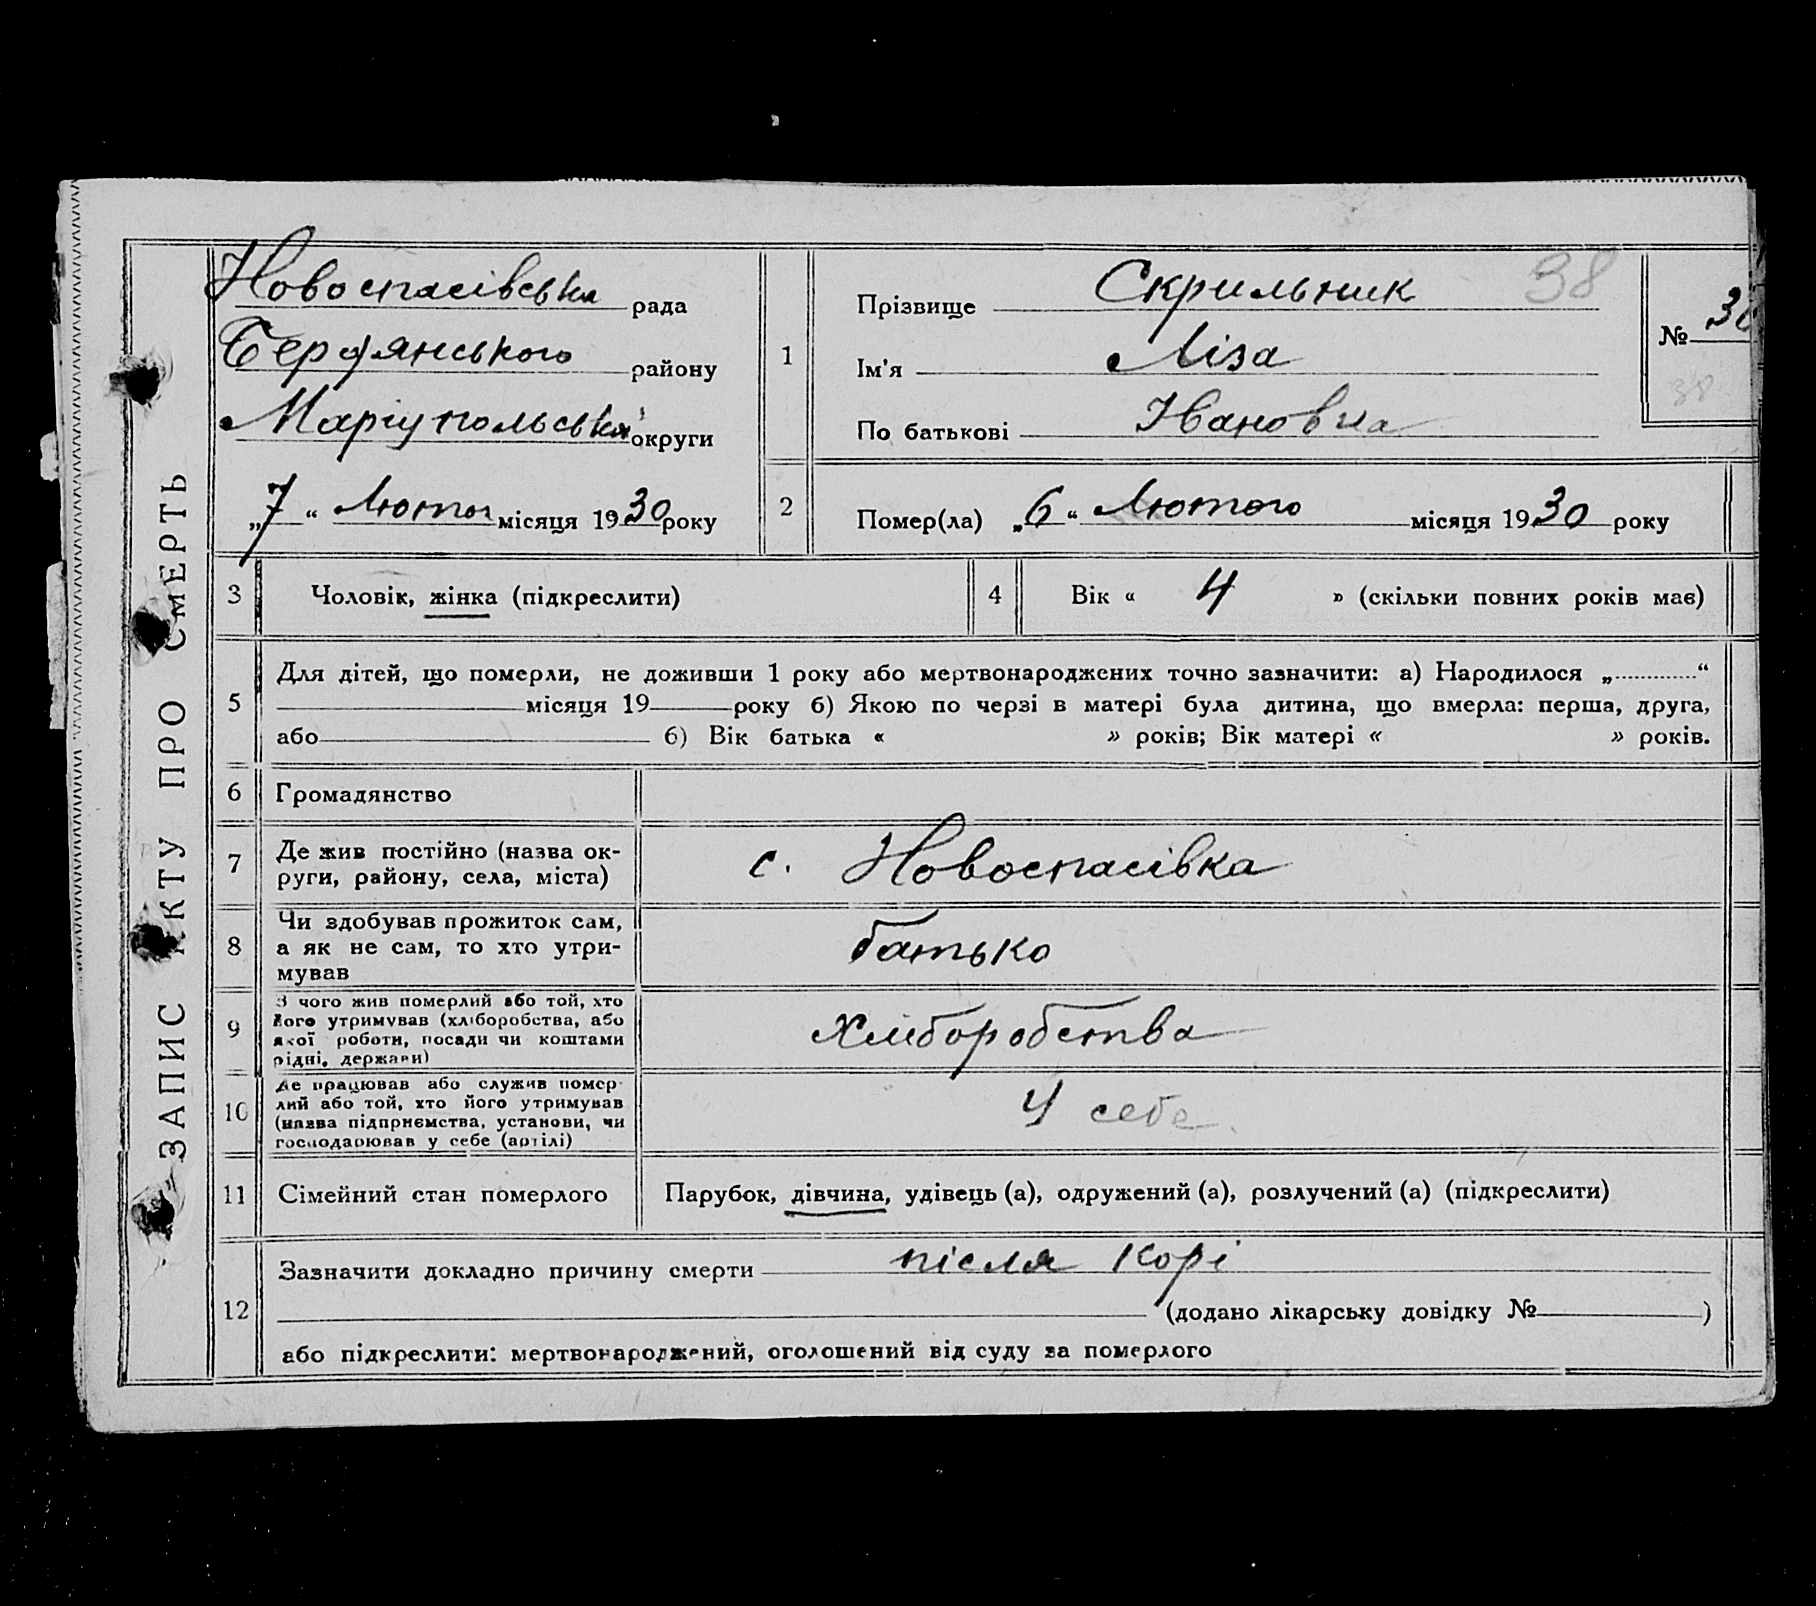 ЗАПИС АКТУ ПРО СМЕРТЬ
Новоспасівська рада
Бердянського району
Маріупольськ округи
„7“ Лютого місяця 1930 року
1
Прізвище Скрильник 38
Ім'я Ліза
По батькові Івановна
№ 38
38
2
Помер(ла) „6“ Лютого місяця 1930 року
3 Чоловік, жінка (підкреслити)
4 Вік « 4 » (скільки повних років має)
5
Для дітей, що померли, не доживши 1 року або мертвонароджених точно зазначити: а) Народилося „ “
місяця 19 року б) Якою по черзі в матері була дитина, що вмерла: перша, друга,
або б) Вік батька « » років; Вік матері « » років.
6 Громадянство
7
Де жив постійно (назва ок-
руги, району, села, міста)
с. Новоспасівка
8
Чи здобував прожиток сам,
а як не сам, то хто утри-
мував
батько
9
З чого жив померлий або той, хто
його утримував (хліборобства, або
якої роботи, посади чи коштами
рідні, держави)
Хліборобства
10
Де працював або служив помер-
лий або той, хто його утримував
(назва підприємства, установи, чи
господарював у себе (артілі)
У себе
11 Сімейний стан померлого Парубок, дівчина, удівець (а), одружений (а), розлучений (а) (підкреслити)
12
Зазначити докладно причину смерти після корі
(додано лікарську довідку № )
або підкреслити: мертвонароджений, оголошений від суду за померлого